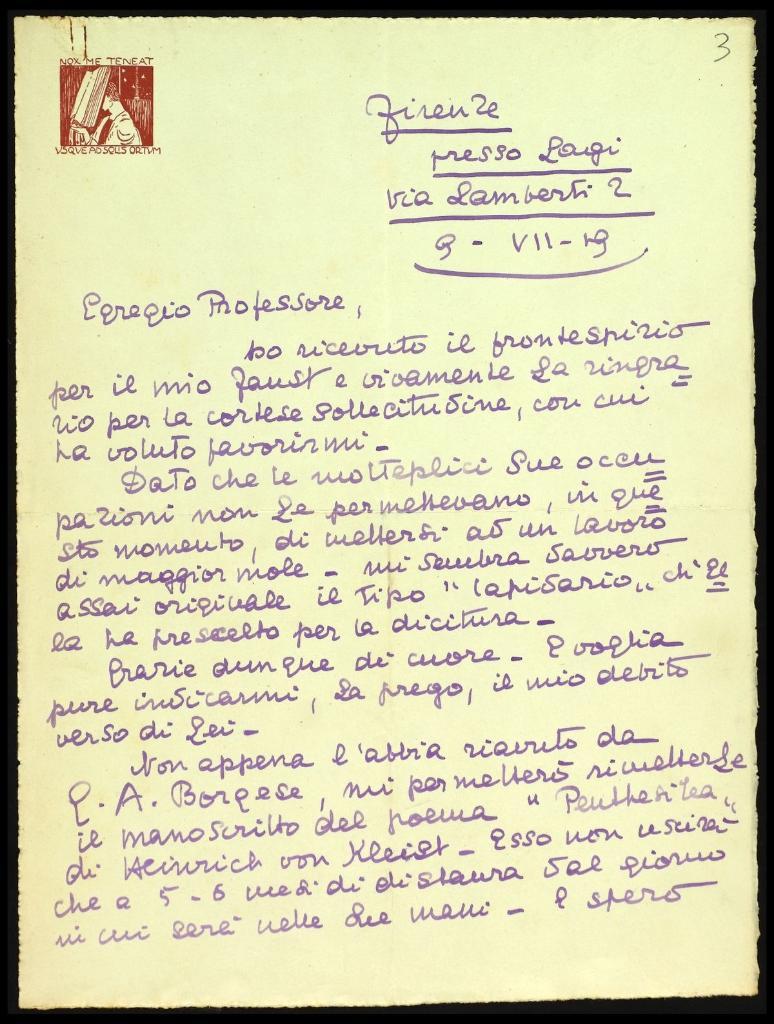 3
NOX ME TENEAT
VSQVE AD SOLIS ORTVM
Firenze
presso Lagi
Via Lamberti 2
9 - VII - 19
Egregio Professore,
ho ricevuto il frontespizio
per il mio Faust e vivamente La ringra=
zio per la cortese sollecitudine, con cui
ha voluto favorirmi -
Dato che le molteplici Sue occu=
pazioni non Le permettevano, in que=
sto momento, di mettersi ad un lavoro
di maggior mole - mi sembra davvero
assai originale il tipo "lapidario" ch'El=
la ha prescelto per la dicitura -
Grazie dunque di cuore - E voglia
pure indicarmi, La prego, il mio debito
verso di Lei -
Non appena l'abbia riavuto da
G. A. Borgese, mi permetterò rimetterLe
il manoscritto del poema "Penthesilea"
di Heinrich von Kleist - Esso non uscirà
che a 5 - 6 mesi di distanza dal giorno
in cui sarà nelle Sue mani - E spero